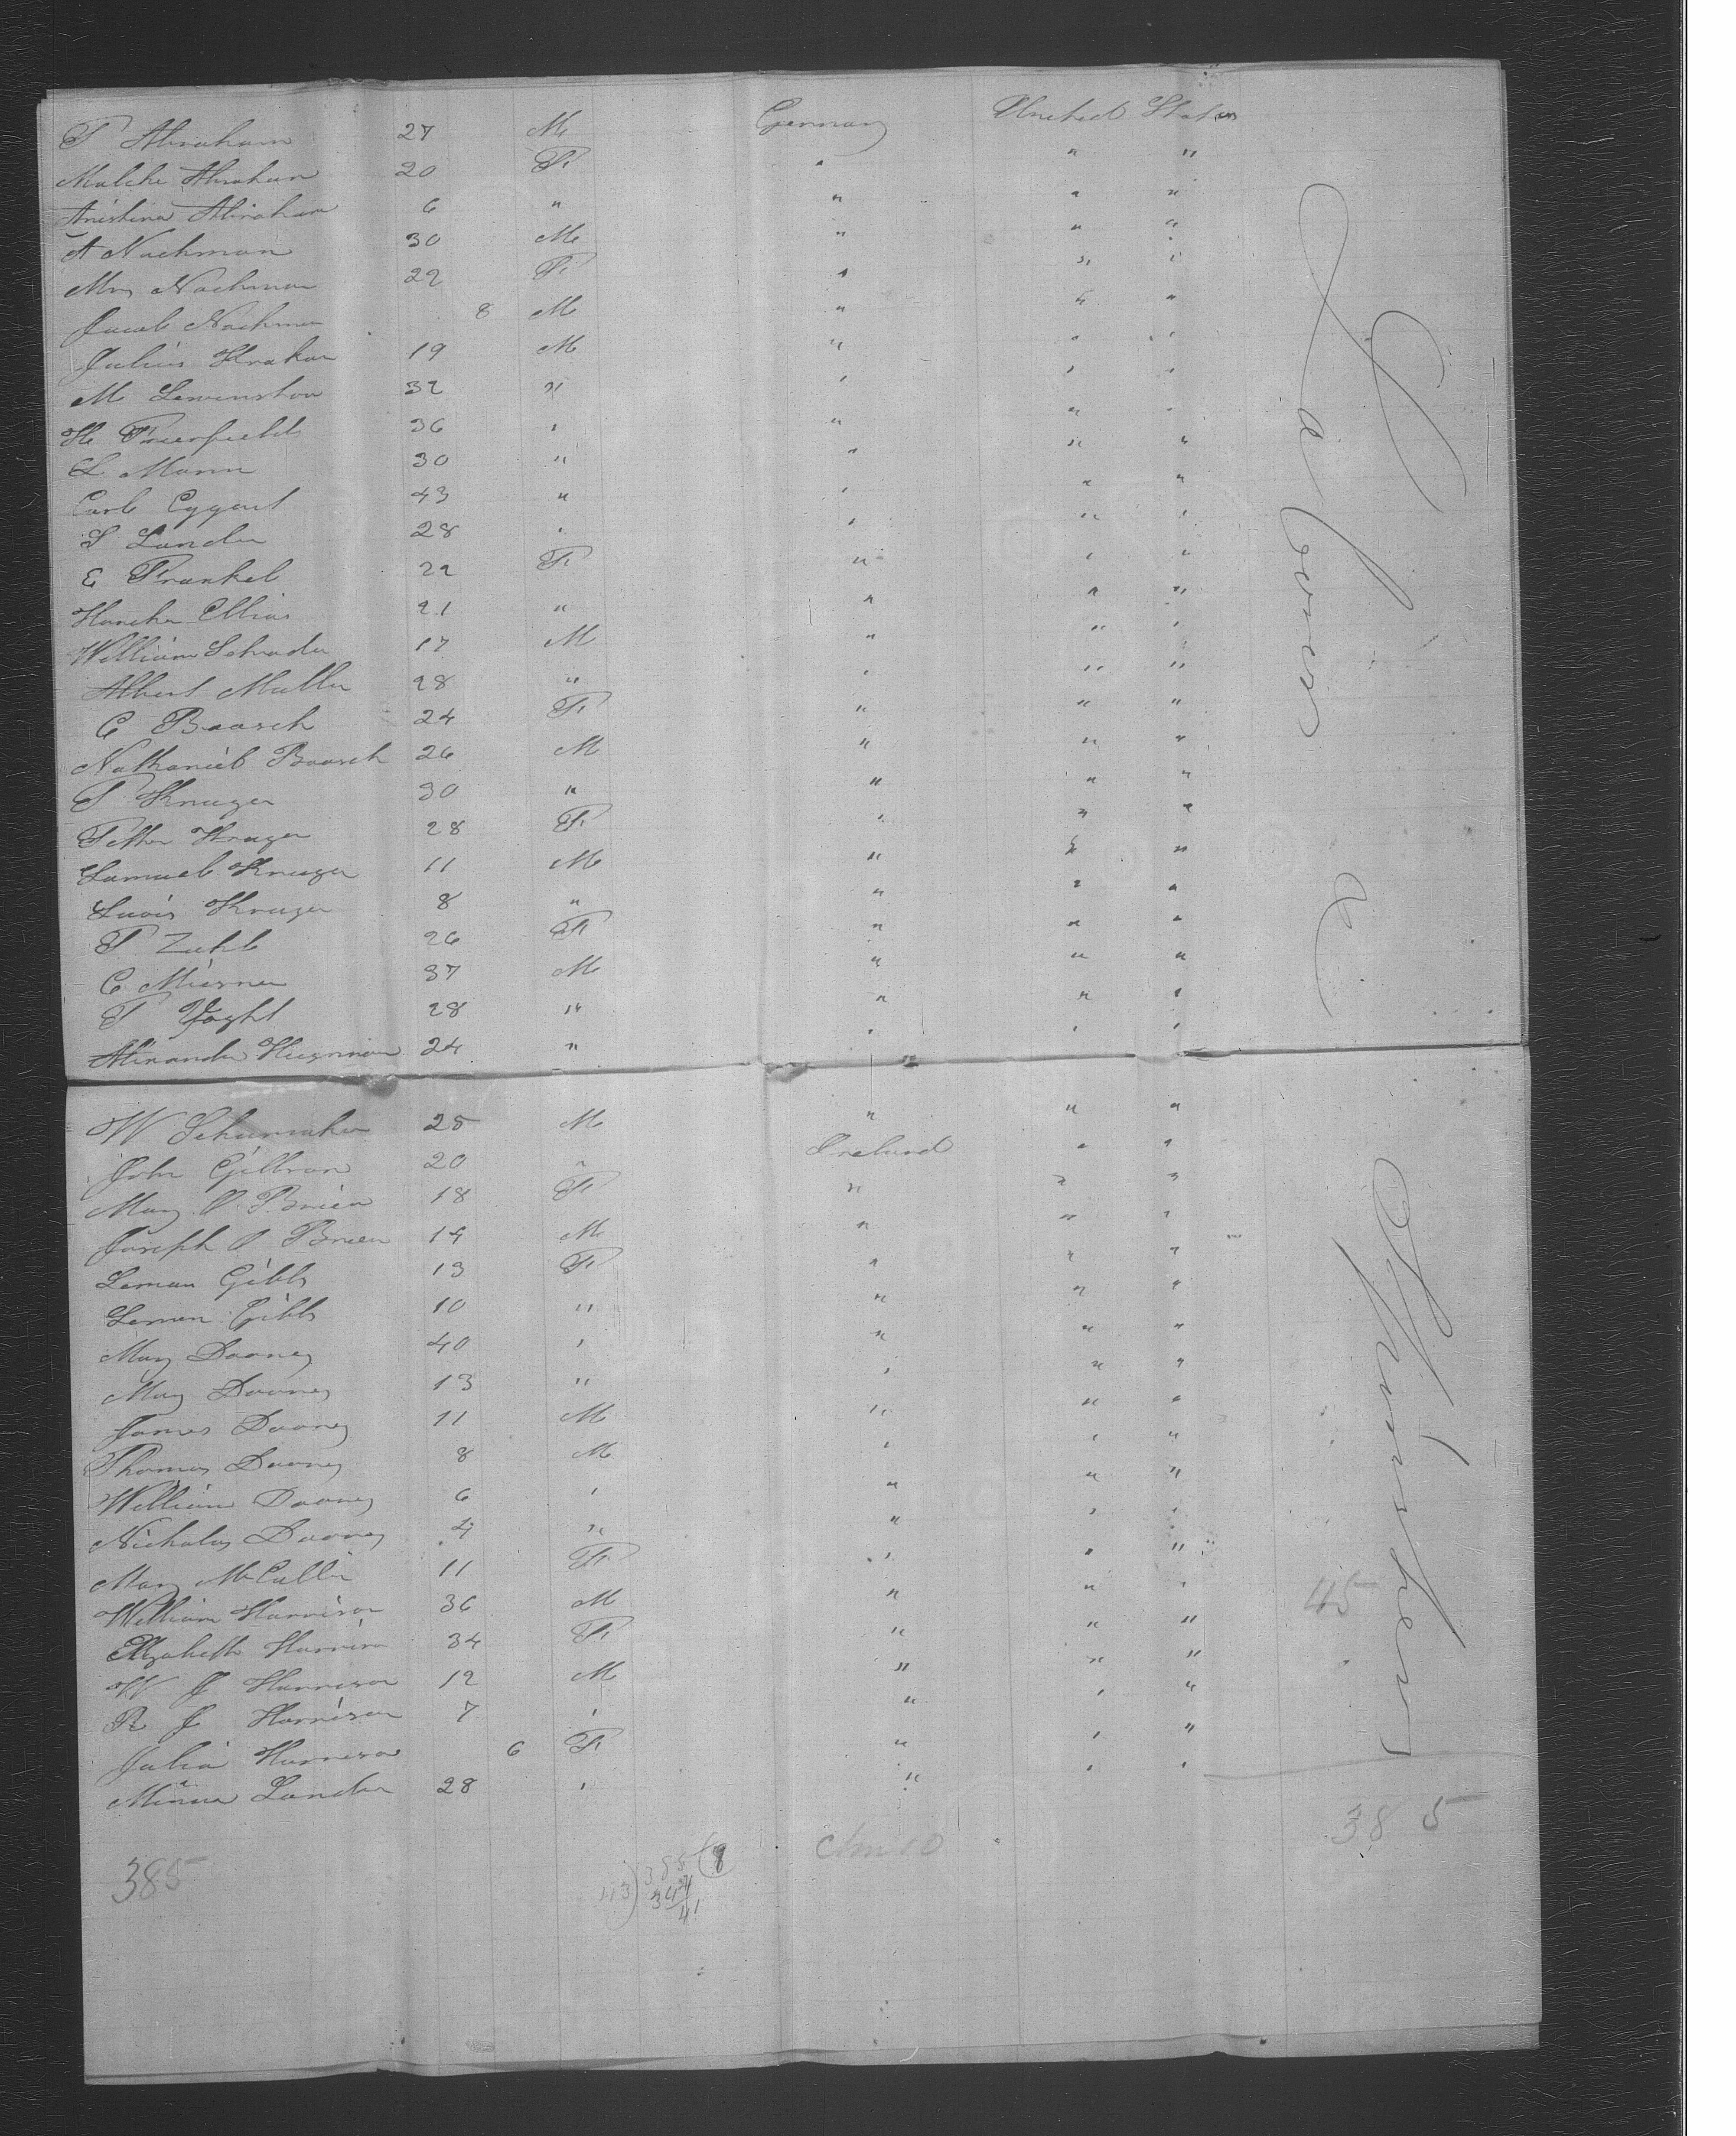 T Abraham 27 M Germany United States
Malche Abraham 20 F " " "
Abraham 6 " " " "
A Nachman 30 M " " "
Mrs Nachman 22 F " " "
Jacob Nachman 8 M " " "
Julius Krakau 19 M " " "
M Lewinshon 32 " " " "
H 36 " " " "
L Mann 30 " " " "
Carl Eggert 43 " " " "
S Lander 28 " " " "
E Frankel 22 F " " "
Ellias 21 " " " "
William Schrader 17 M " " "
Albert Muller 28 " " " "
C Baasch 24 F " " "
Nathaniel Baasch 26 M " " "
T Kruger 30 " " " "
Kruger 28 F " " "
Samuel Kruger 11 M " " "
Louis Kruger 8 " " " "
T Zuhl 26 F " " "
C Miesner 37 M " " "
T Voght 28 " " " "
24 " " " "
W Schumaker 25 M " " "
John 20 " Ireland " "
Mary O Brien 18 F " " "
Joseph O Brien 14 M " " "
Leman Gibbs 13 F " " "
Leman Gibbs 10 " " " "
Mary Dooney 40 " " " "
Mary Dooney 13 " " " "
James Dooney 11 M " " "
Thomas Dooney 8 M " " "
William Dooney 6 " " " "
Nicholas Dooney 4 " " " "
Mary McCullin 11 F " " "
William Harrison 36 M " " "
Elizabeth Harrison 34 F " " "
W J Harrison 12 M " " "
R J Harrison 7 " " " "
Julia Harrison 6 F " " "
Minna Lander 28 " " " "
Labourers &
Spinsters
45
385
385
43) 385 (8
344
41